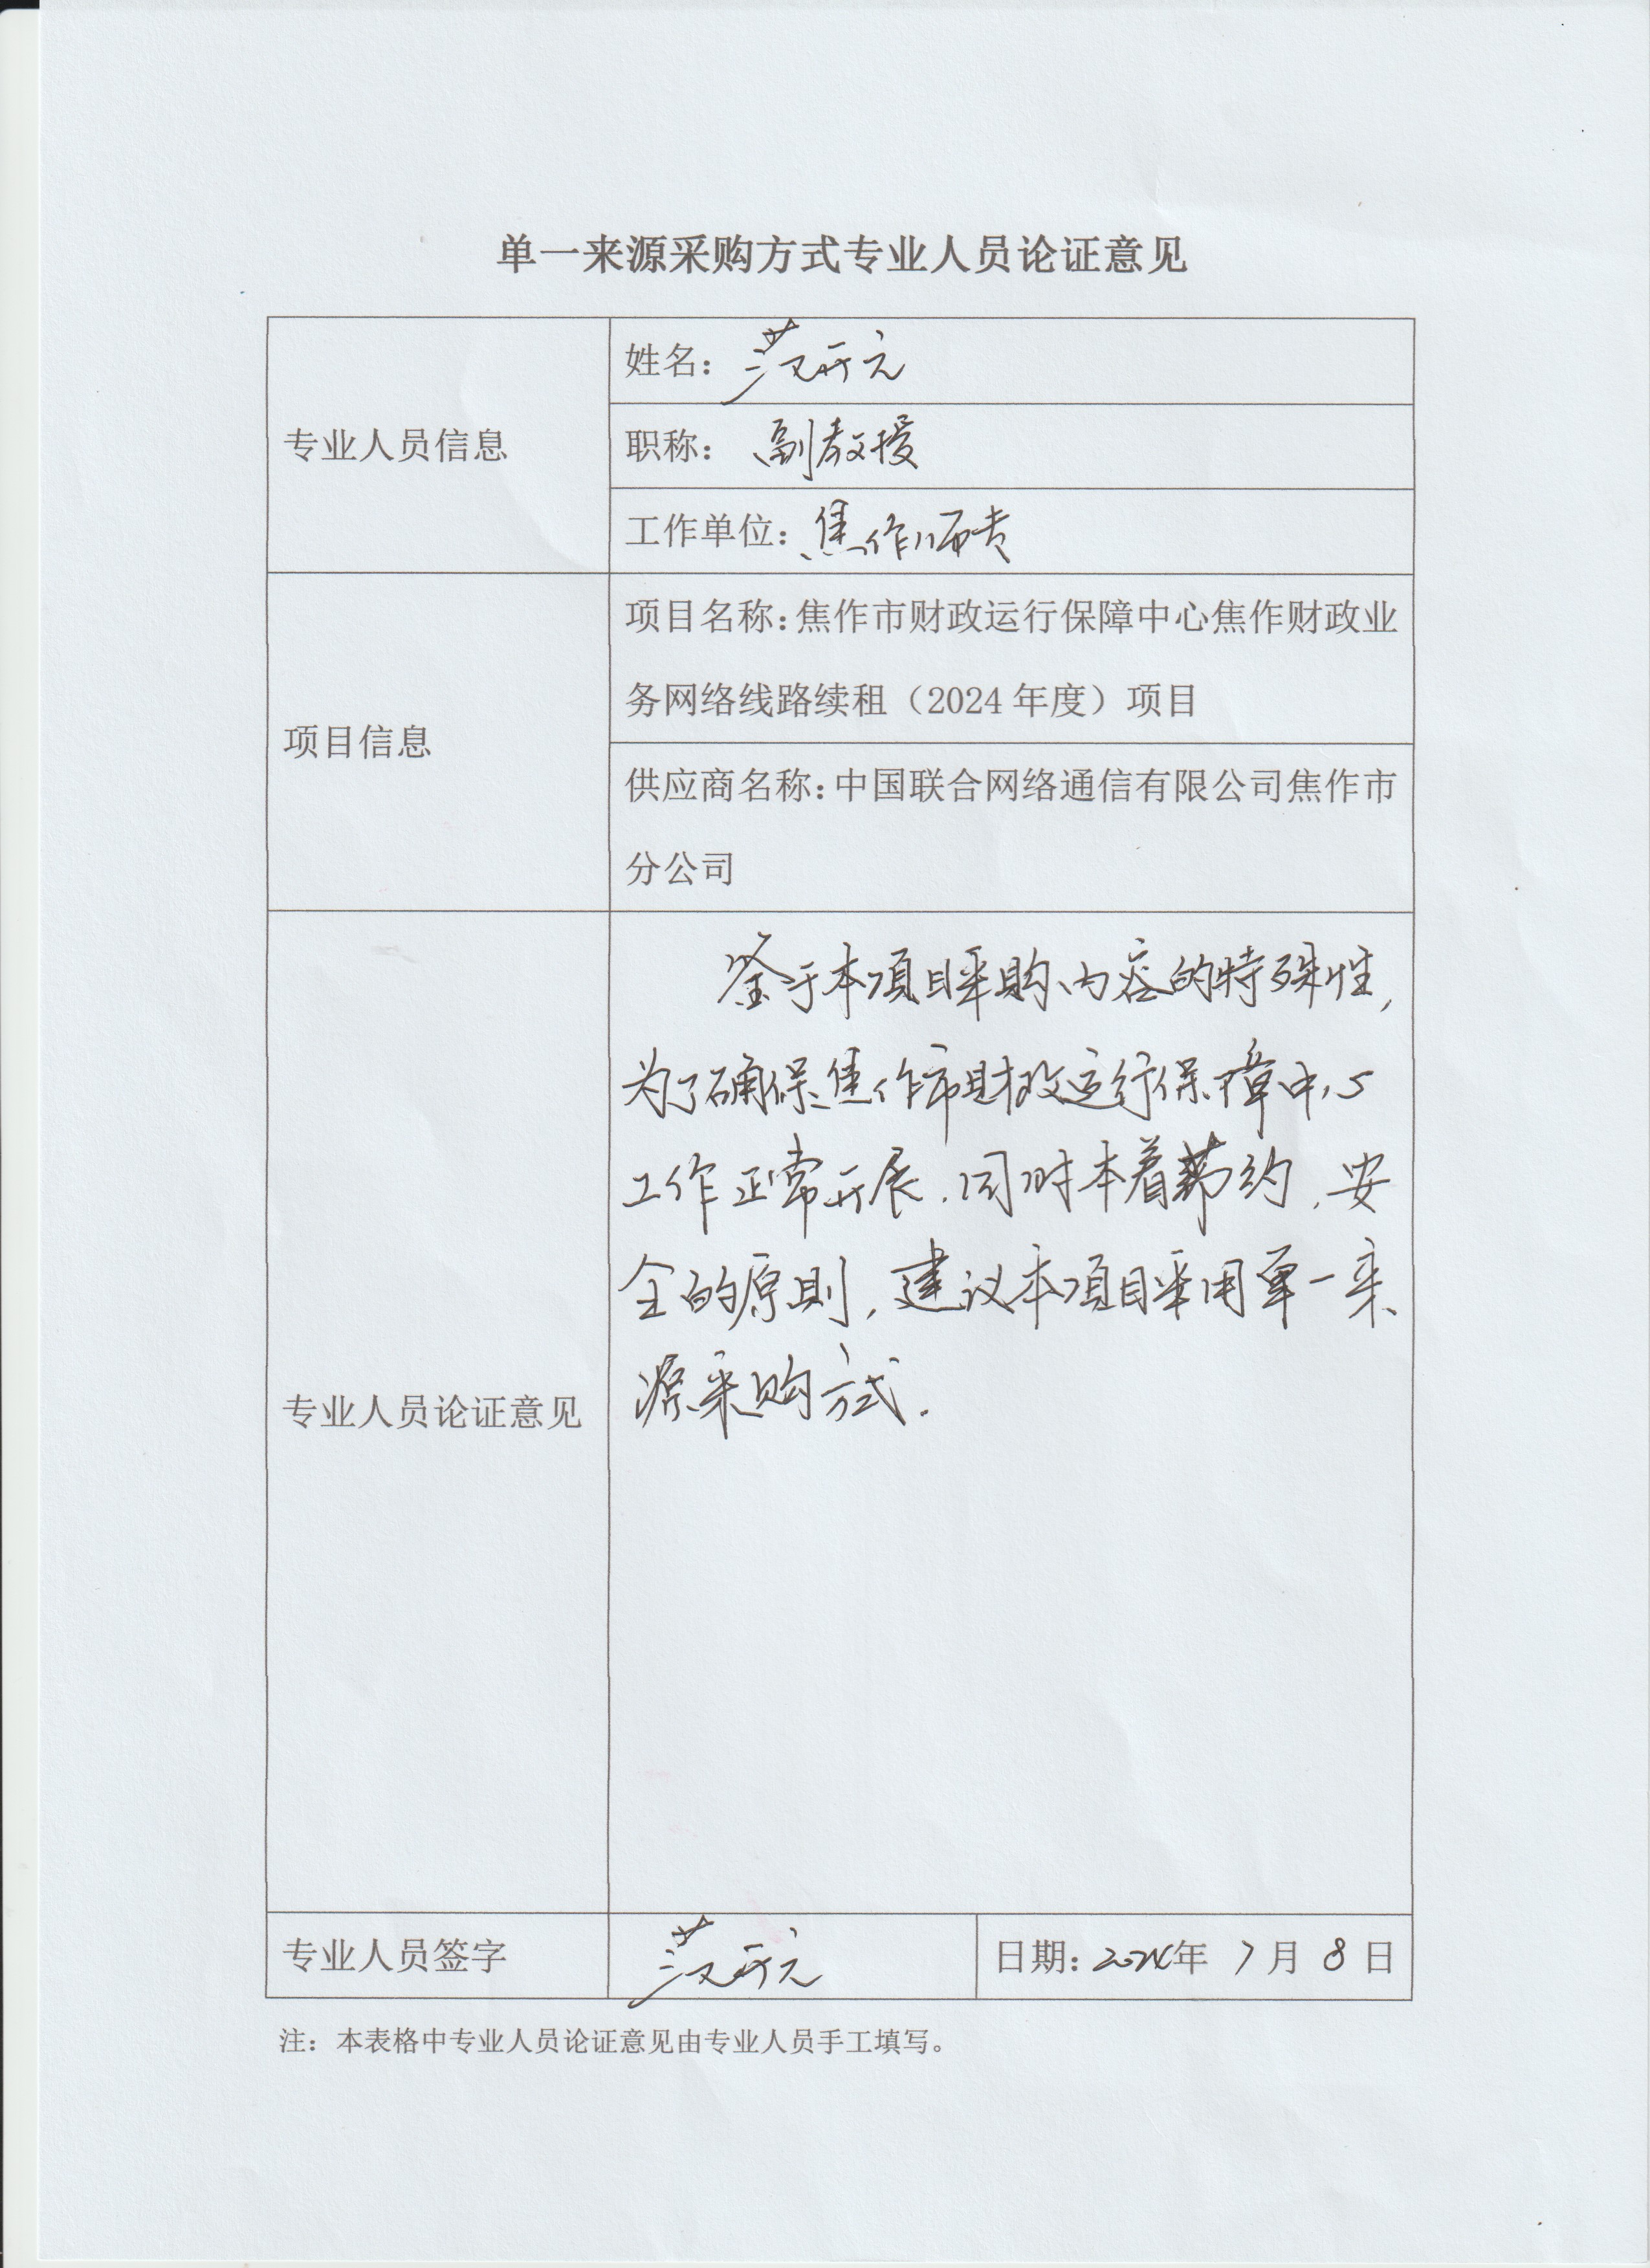 单一来源采购方式专业人员论证意见
专业人员信息
姓名：范开元
职称：副教授
工作单位：焦作师专
项目信息
项目名称：焦作市财政运行保障中心焦作财政业
务网络线路续租（2024年度）项目
供应商名称：中国联合网络通信有限公司焦作市
分公司
专业人员论证意见
鉴于本项目采购内容的特殊性，
为了确保焦作市财政运行保障中心
工作正常开展，同时本着节约、安
全的原则，建议本项目采用单一来
源采购方式.
专业人员签字
范开元
日期：2024年7月8日
注：本表格中专业人员论证意见由专业人员手工填写。